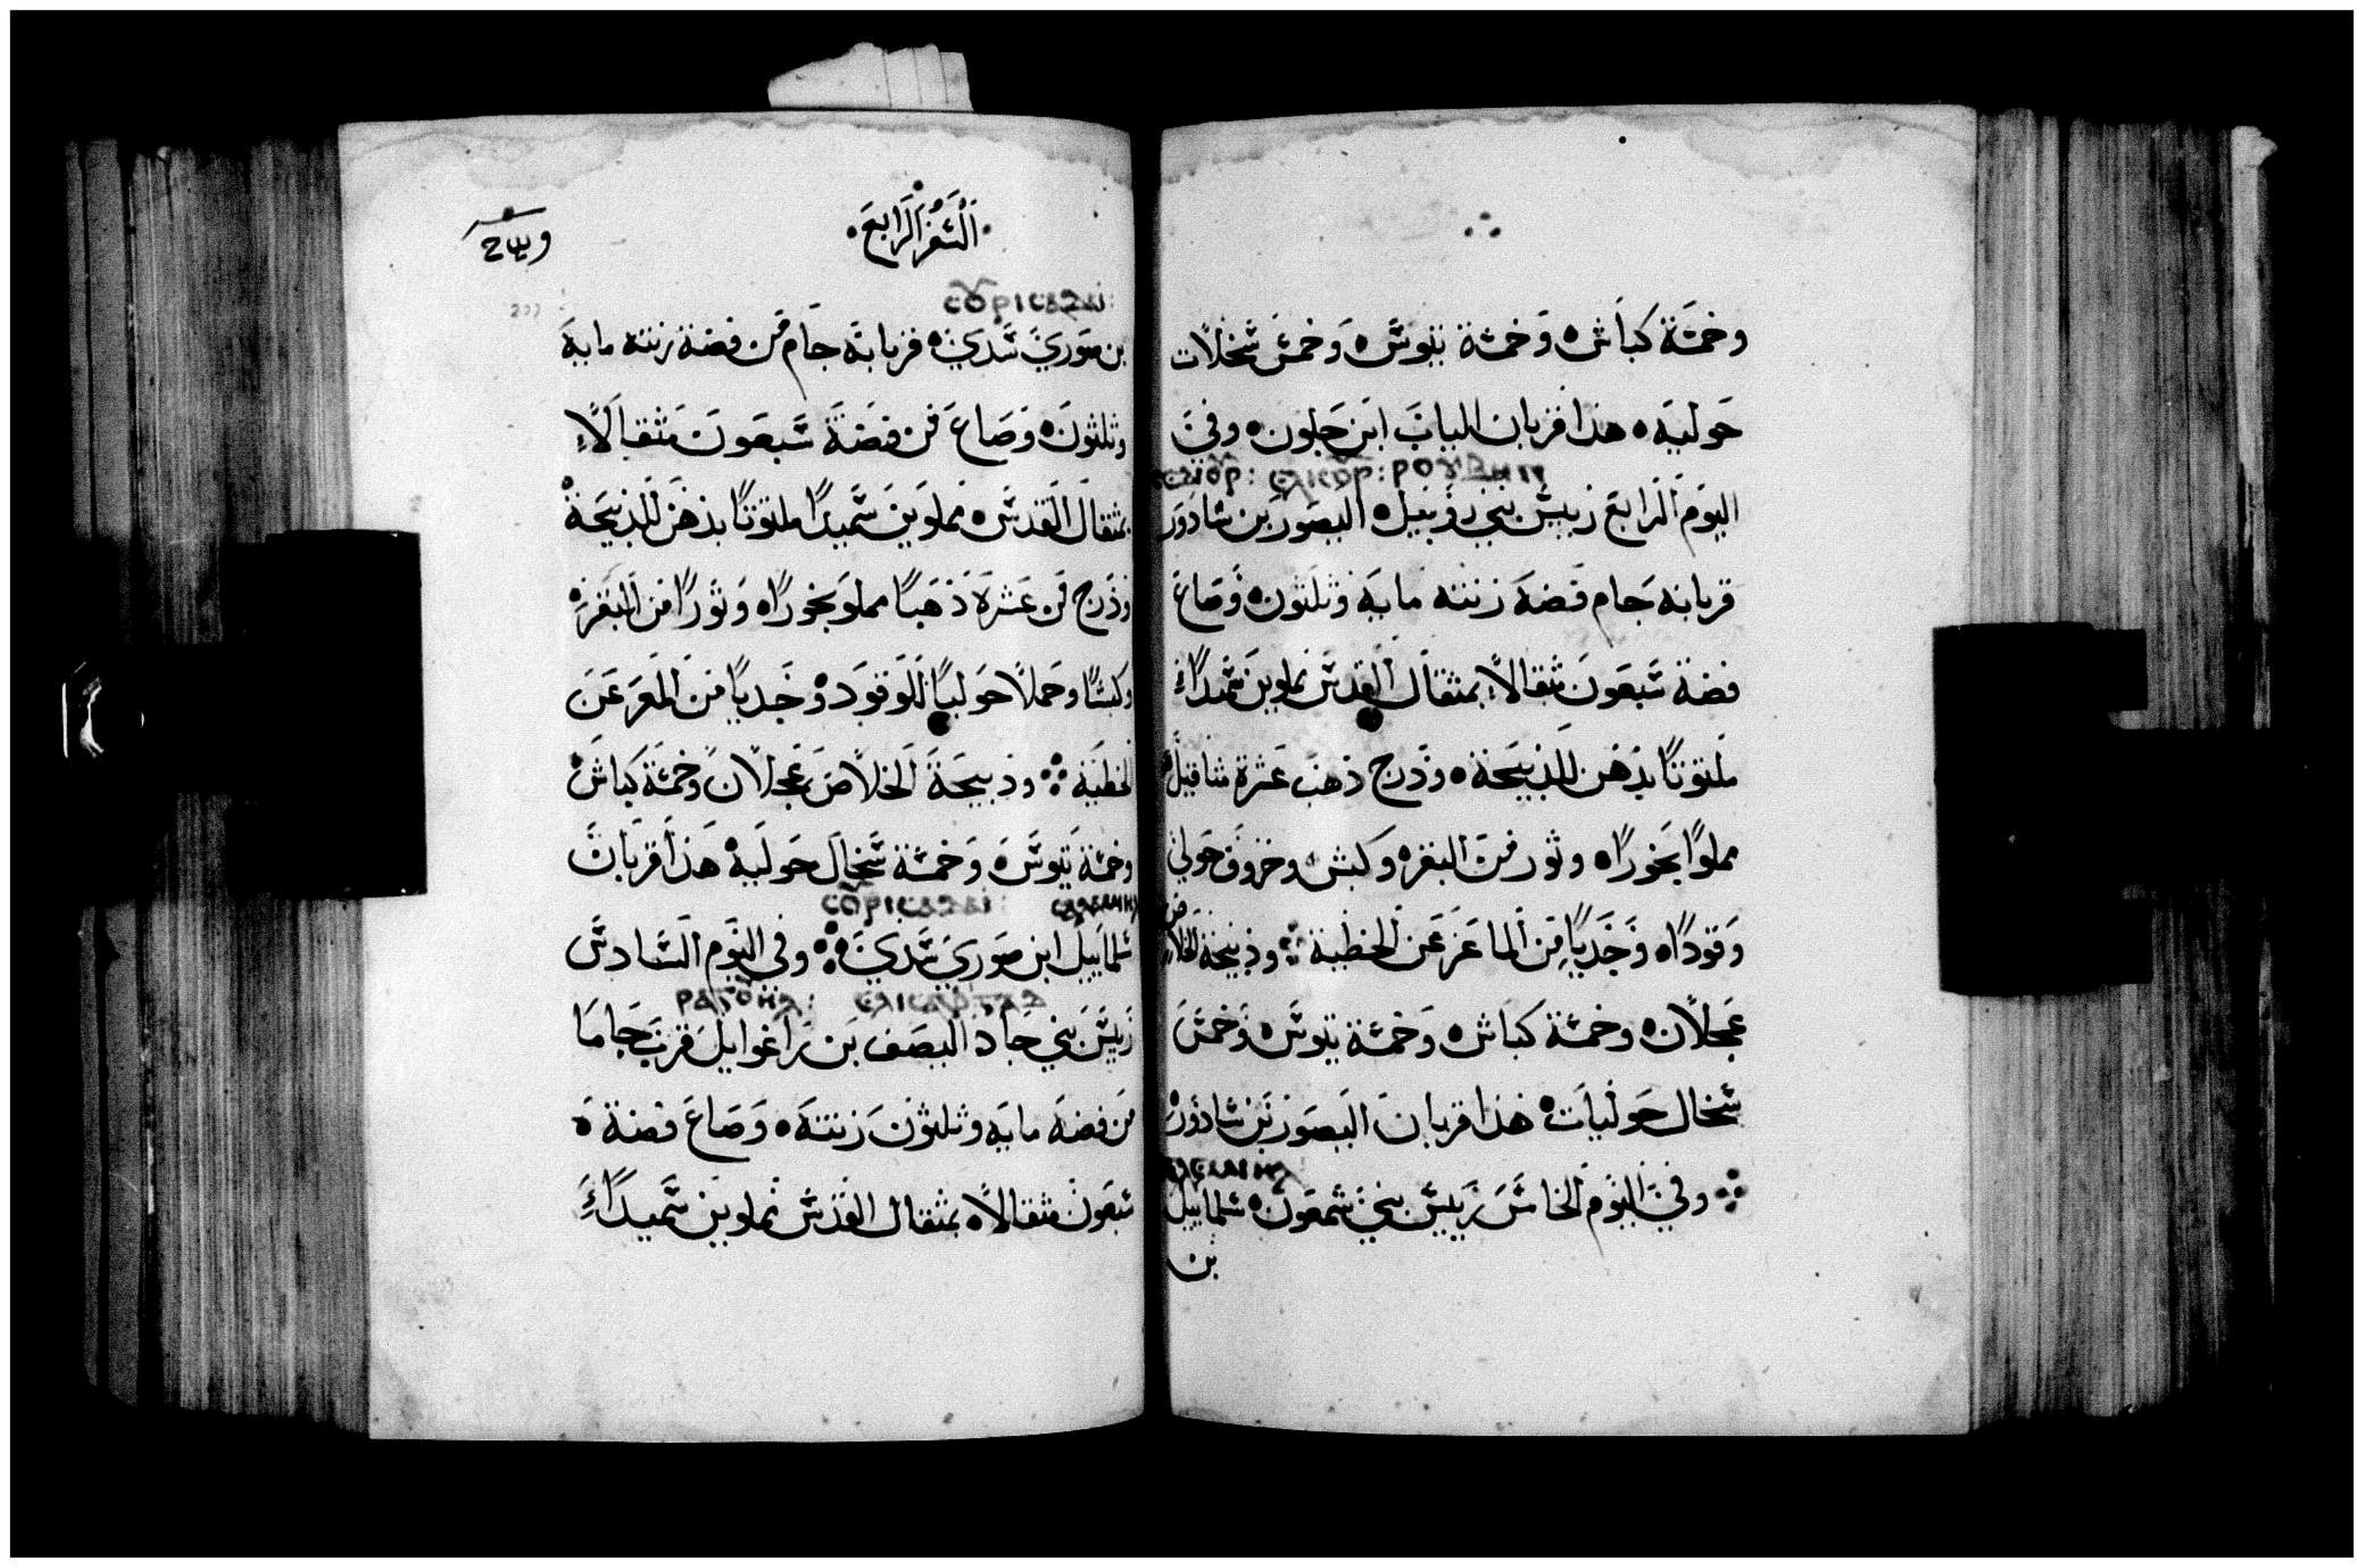 وخمسَة كباَش ه وَخمسَة تيوسَ ه وَخمسَ سَخلاَت
حَوليَه ه هذا قربان الياب ابن حَلون ه وفي
ⲥⲉⲇⲓⲟⲩⲣ: ⲉⲗⲓⲥⲟⲩⲣ: ⲣⲟⲩⲃⲏⲛ
اليوَم الَرابعَ رييسَ بني روَبيل ه اليصَور بن شادوَر
قربانه جَام فضَه زنته مايَة وثلثون ه وَصَاعَ
فضة سَبعَون مثقالاً بمثقال القدسَ مملوين سَميداً
ملتوتاً بدَهن للذبيَحة ه ودَرج ذهبَ عَشرة مثاقيل
مملواً بخَوراً ه وثور منَ البقر ه وكبش وخروَف حَولي
وَقوداً ه وَجَدياً مِن الماعَز عَن الخطية ⁘ وذبيحَة الخلاص
عَجلاَن ه وخمسَة كباَش ه وَخمسَة تيوسَ ه وَخمسَ
سَخال حَولياَت ه هَذا قربان اليصَور بَن شادوَر
ⲥⲁⲗⲁⲙⲓⲏⲗ
⁘ وفي اليوَم الخامسَ رَييسَ بني شمعَون ه شلماييل
بن
السَفر الَرابعَ
ⲥⲟⲩⲣⲓⲥⲁⲇⲁⲓ:
بن صَوري سَدَي ه قربانة جَام مَن فضة زنته مايةَ
وثلثونَ ه وَصَاعَ مَن فضَة سَبعَونَ مَثقالاً
بمثقال القَدسَ ه مملوَين سَميداً ملتوَتاً بدَهن للذَبيَحة
ودَرج مَن عَشرَة ذَهَباً مملوَ بخَوراً ه وَثوَراً من البقر ه
وكبشاً وحَملاً حَولياً للوَقوَد ه وَجَدياً منَ المعَز عَنَ
الخطيَة ⁘ وذبيحَة الخلاَصَ عَجلاَن وخمسَة كباشَ ه
وخمسَة تيوسَ ه وَخمسَة سَخال حَوليَة ه هَذا قرباَن
ⲥⲟⲩⲣⲓⲥⲁⲇⲁⲓ: ⲥⲁⲗⲁⲙⲓⲏⲗ
شلماييل ابن صَوري سَدَي ⁘ وفي اليوَم السَادسَ
ⲣⲁⲅⲟⲩⲏⲗ: ⲉⲗⲓⲥⲁⲫ
رَييسَ بني جاد اليصَف بَن رَاغوايل قربَ جَاماَ
مَن فضَه مايَه وثلثوَن زنتَه ه وَصَاعَ فضَة ه
سَبعَون مثقالاً ه بمثقال القَدسَ مملوين سَميداً